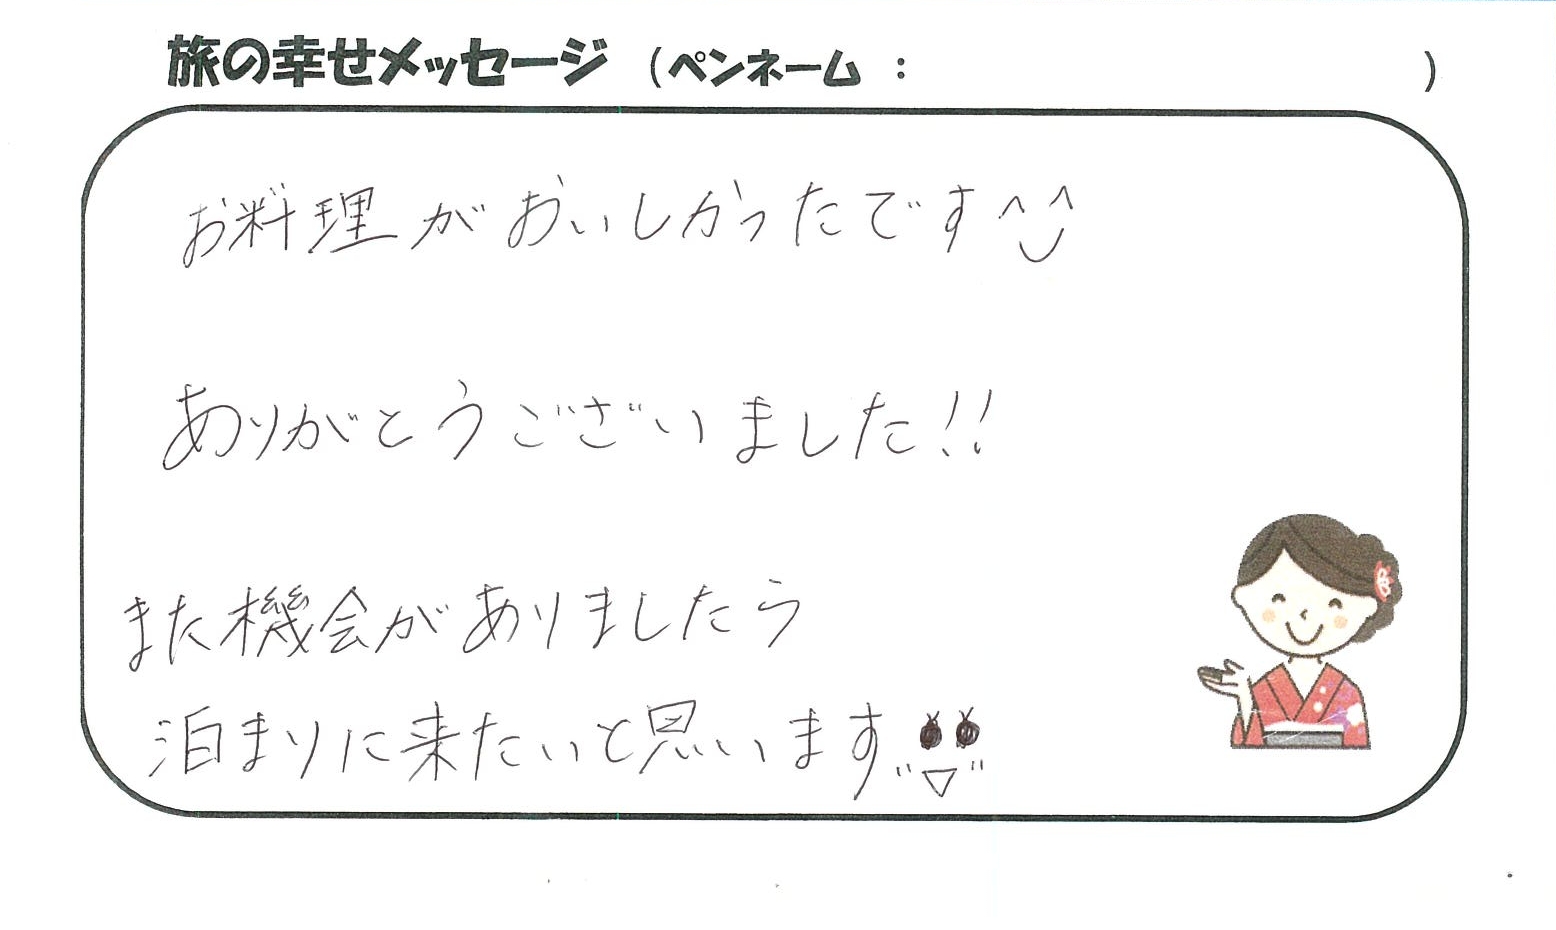 旅の幸せメッセージ (ペンネーム : )
お料理がおいしかったです^^
ありがとうございました!!
また機会がありましたら
泊まりに来たいと思います